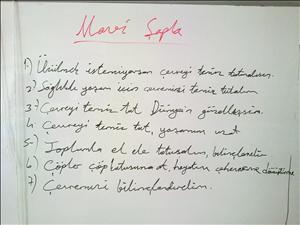 Mavi Şapka
1) Üzülmek istemiyorsan çevreyi temiz tutmalısın.
2) Sağlıklı yaşam için çevremizi temiz tutalım
3) Çevreyi temiz tut Dünyan güzelleşsin.
4. Çevreyi temiz tut, yaşamını uzat
5) Toplumla el ele tutuşalım, bilinçlendirelim
6) Çöpler çöp kutusuna at, hayatını cehenneme dönüştürme
7) Çevremizi bilinçlendirelim.